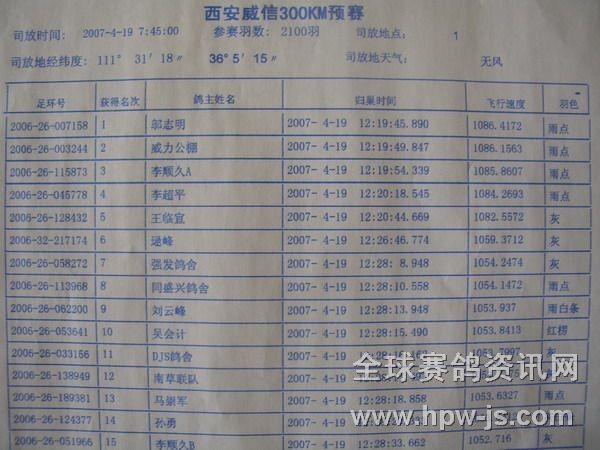 西安威信300KM预赛
司放时间: 2007-4-19 7:45:00 参赛羽数: 2100羽 司放地点: 1
司放地经纬度: 111° 31′ 18〃 36° 5′ 15〃 司放地天气: 无风
足环号 获得名次 鸽主姓名 归巢时间 飞行速度 羽色
2006-26-007158 1 邬志明 2007- 4-19 12:19:45.890 1086.4172 雨点
2006-26-003244 2 威力公棚 2007- 4-19 12:19:49.847 1086.1563 雨点
2006-26-115873 3 李顺久A 2007- 4-19 12:19:54.339 1085.8607 雨点
2006-26-045778 4 李超平 2007- 4-19 12:20:18.545 1084.2693 雨点
2006-26-128432 5 王临宣 2007- 4-19 12:20:44.669 1082.5572 灰
2006-32-217174 6 峰 2007- 4-19 12:26:46.774 1059.3712 灰
2006-26-058272 7 强发鸽舍 2007- 4-19 12:28: 8.948 1054.2474 灰
2006-26-113968 8 同盛兴鸽舍 2007- 4-19 12:28:10.558 1054.1472 雨点
2006-26-062200 9 刘云峰 2007- 4-19 12:28:13.948 1053.937 雨白条
2006-26-053641 10 吴会计 2007- 4-19 12:28:15.490 1053.8413 红楞
2006-26-033156 11 DJS鸽舍 2007- 4-19 12:28: 灰
2006-26-138949 12 南草联队 2007- 4-19
2006-26-189381 13 马崇军 2007- 4-19 12:28:18.858 1053.6327 雨点
2006-26-124377 14 孙勇 2007- 4-19
2006-26-051966 15 李顺久B 2007- 4-19 12:28:33.662 1052.716 灰
全球赛鸽资讯网
www.hpw-js.com